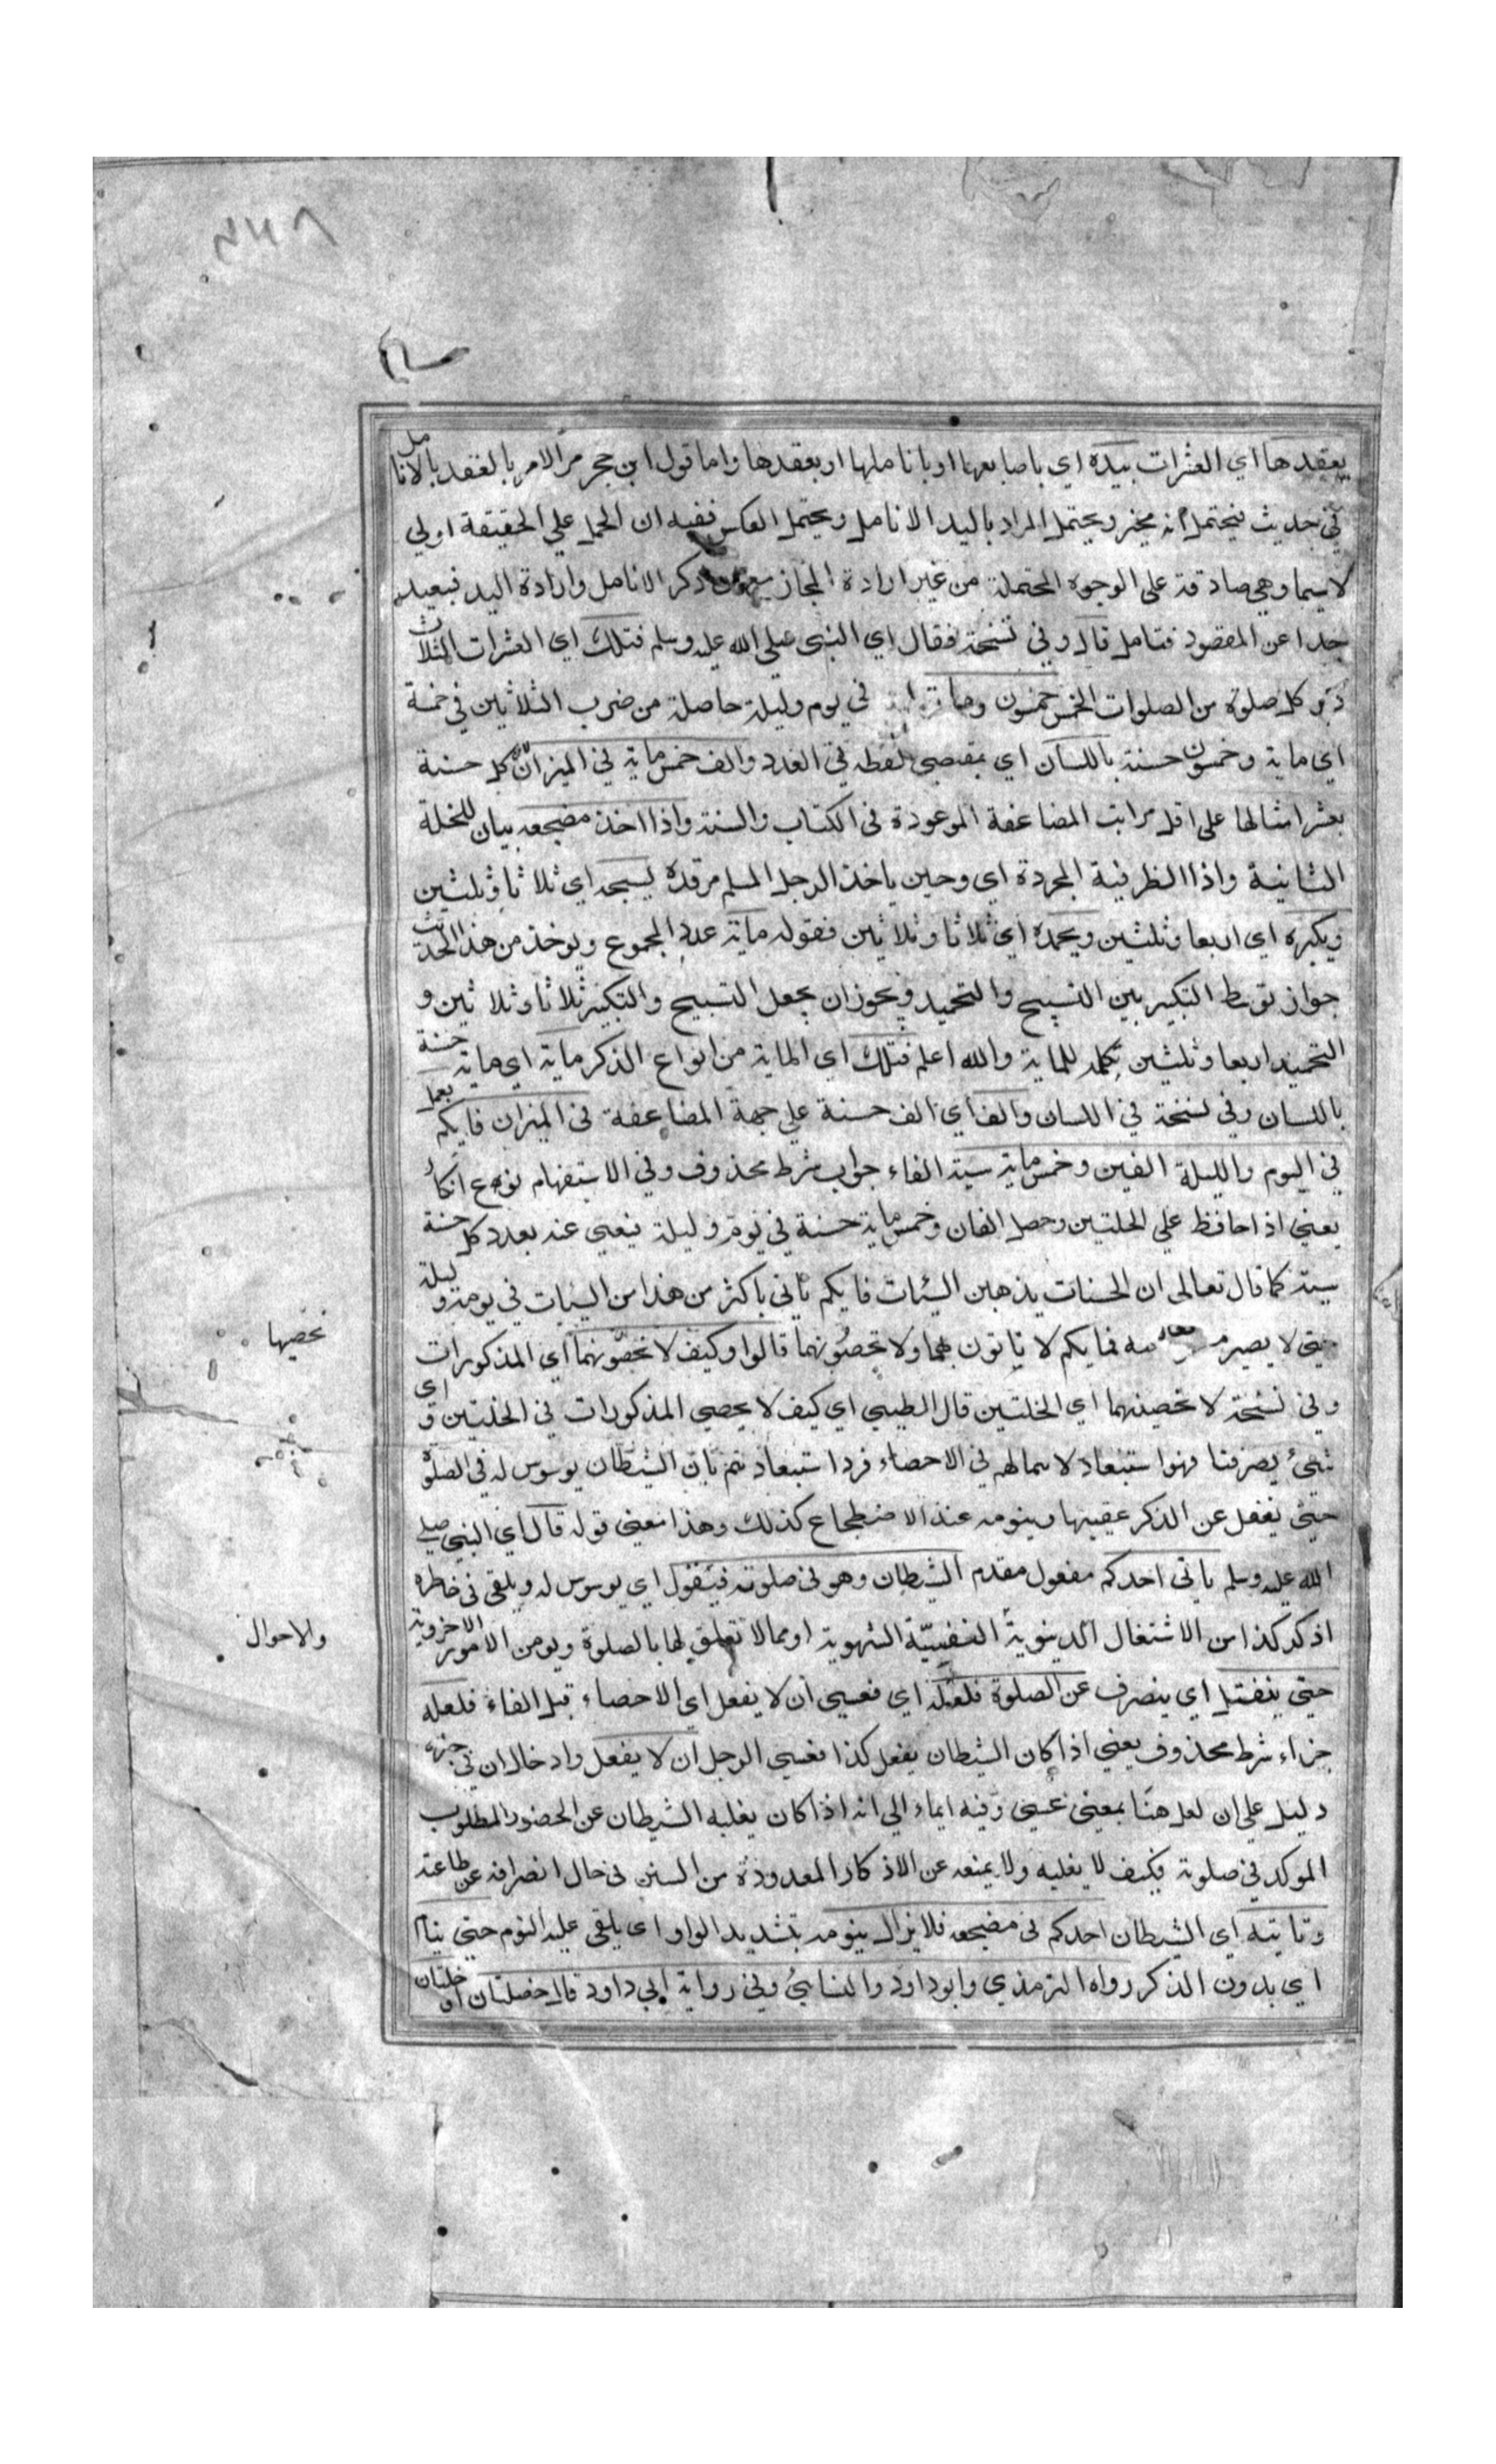 يعقدها اي العشرات بيده اي باصابعها او باناملها او بعقدها واما قول ابن حجر مر الامر بالعقد بالانامل
في حديث فيحتمل انه مخير ويحتمل المراد باليد الانامل ويحتمل العكس ففيه ان الحمل علي الحقيقة اولي
لاسيما وهي صادقة على الوجوه المحتملة من غير ارادة المجاز ذكر الانامل وارادة اليد فبعيد
جدا عن المقصود فتامل قال وفي نسخة فقال اي النبي صلي الله عليه وسلم فتلك اي العشرات الثلاث
دبر كل صلوة من الصلوات الخمس خمسون وماية في يوم وليلة حاصلة من ضرب الثلاثين في خمسة
اي ماية وخمسون حسنة باللسان اي بمقتضي لفظه في العدد والف خمس ماية في الميزان كل حسنة
بعشر امثالها على اقل مراتب المضاعفة الموعودة في الكتاب والسنة واذا اخذ مضجعه بيان للخلة
الثانية واذا الظرفية المجردة اي وحين ياخذ الرجل المسلم مرقده يسبحه اي ثلاثا وثلثين
ويكبره اي اربعا وثلثين ويحمده اي ثلاثا وثلاثين فقوله ماية عدد المجموع ويوخذ من هذا الحديث
جواز توسط التكبير بين التسبيح والتحميد ويجوز ان يجعل التسبيح والتكبير ثلاثا وثلاثين و
التحميد اربعا وثلثين تكملة للماية والله اعلم فتلك اي الماية من انواع الذكر ماية اي ماية حسنة
باللسان وفي نسخة في اللسان والف اي الف حسنة علي جهة المضاعفة في الميزان فايكم يعمل
في اليوم والليلة الفين وخمس ماية سيئة الفاء جواب شرط محذوف وفي الاستفهام نوع انكار
يعني اذا حافظ علي الخلتين وحصل الفان وخمس ماية حسنة في يوم وليلة فيعفي عنه بعدد كل حسنة
سيئة كما قال تعالى ان الحسنات يذهبن السيئات فايكم ياتي باكثر من هذا من السيئات في يومه وليلة
حتي لا يصير فما يكم لا تاتون بهما ولا تحصونهما قالوا وكيف لا نحصونهما اي المذكورات
نحصيها
وفي نسخة لا نحصيهما اي الخلتين قال الطيبي اي كيف لا نحصي المذكورات في الخلتين واي
شيئ يصرفنا فهو استبعاد لاهمالهم في الاحصاء فرد استبعادهم بان الشيطان يوسوس له في الصلوة
حتي يغفل عن الذكر عقيبها وينومه عند الاضطجاع كذلك وهذا معني قوله قال اي النبي صلي
الله عليه وسلم ياتي احدكم مفعول مقدم الشيطان وهو في صلوته فيقول اي يوسوس له ويلقي في خاطره
اذكر كذا من الاشتغال الدينوية النفسيّة الشهوية او مما لا تعلق لها بالصلوة ولو من الامور الاخروية
والاحوال
حتي ينفتل اي ينصرف عن الصلوة فلعله اي فعسي ان لا يفعل اي الاحصاء قيل الفاء فلعله
جزاء شرط محذوف يعني اذا كان الشيطان يفعل كذا فعسي الرجل ان لا يفعل وادخال ان في خبره
دليل علي ان لعل هنا بمعني عسي وفيه ايماء الي انه اذا كان يغلبه الشيطان عن الحضور المطلوب
الموكد في صلوته فكيف لا يغلبه ولا يمنعه عن الاذكار المعدودة من السنن في حال انصرافه عن طاعته
وتاتيه اي الشيطان احدكم في مضجعه فلا يزال ينومه بتشديد الواو اي يلقي عليه النوم حتي ينام
اي بدون الذكر رواه الترمذي وابوداود والنسايئ وفي رواية ابي داود قال خصلتان او خلتان